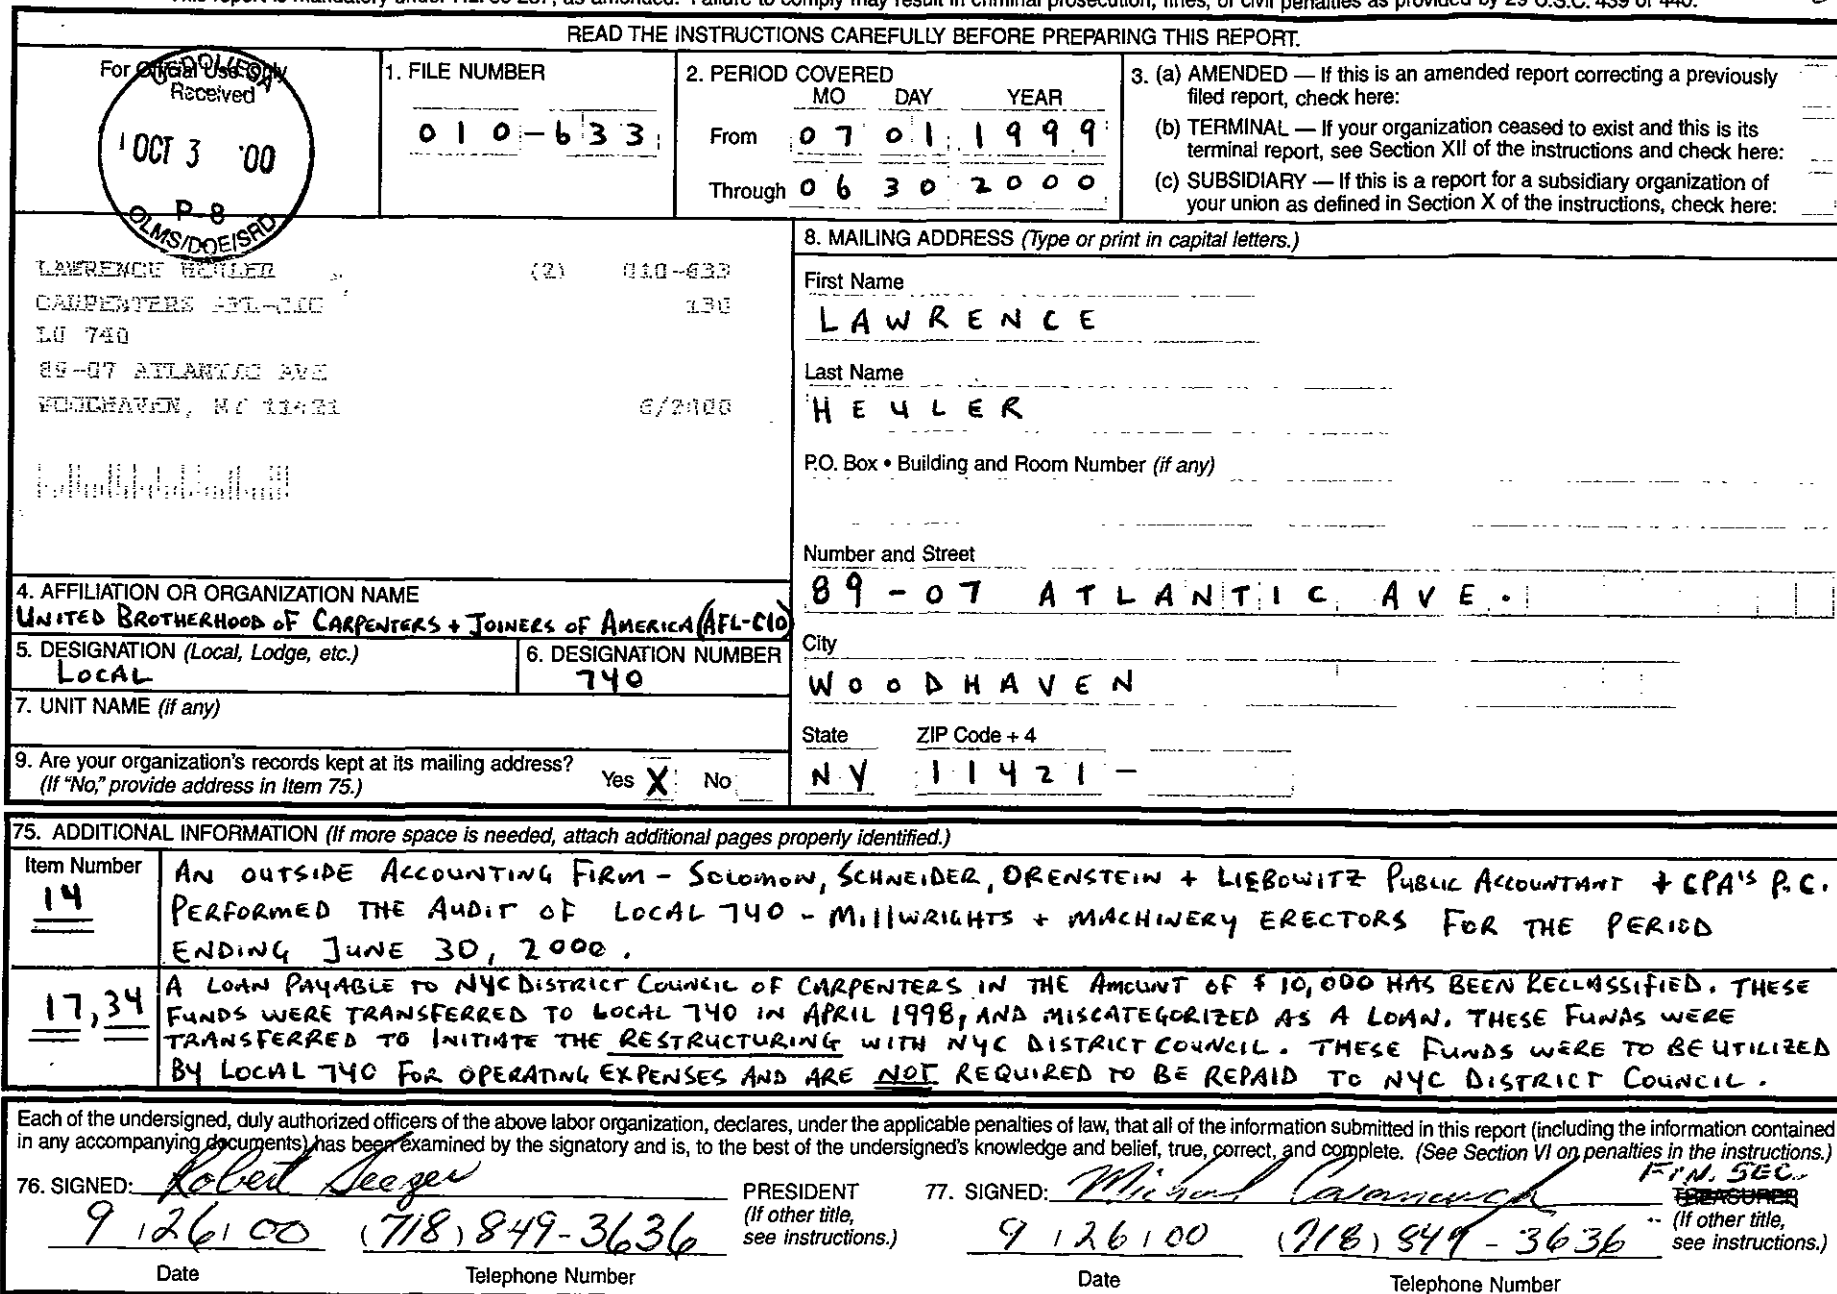 This report is mandatory under P.L. 86-257, as amended. Failure to comply may result in criminal prosecution, fines, or civil penalties as provided by 29 U.S.C. 439 or 440.
READ THE INSTRUCTIONS CAREFULLY BEFORE PREPARING THIS REPORT.
For Official Use Only
Received
OCT 3 '00
P-8
OLMS/DOE/SRD
1. FILE NUMBER
010-633
2. PERIOD COVERED
MO DAY YEAR
From 07 01 1999
Through 06 30 2000
3. (a) AMENDED — If this is an amended report correcting a previously
filed report, check here:
(b) TERMINAL — If your organization ceased to exist and this is its
terminal report, see Section XII of the instructions and check here:
(c) SUBSIDIARY — If this is a report for a subsidiary organization of
your union as defined in Section X of the instructions, check here:
LAWRENCE HEULER (2) 010-633
CARPENTERS AFL-CIO 130
LU 740
89-07 ATLANTIC AVE
WOODHAVEN, NY 11421 6/2000
4. AFFILIATION OR ORGANIZATION NAME
UNITED BROTHERHOOD OF CARPENTERS + JOINERS OF AMERICA (AFL-CIO)
5. DESIGNATION (Local, Lodge, etc.)
LOCAL
6. DESIGNATION NUMBER
740
7. UNIT NAME (if any)
9. Are your organization's records kept at its mailing address?
(If "No," provide address in Item 75.) Yes X No
8. MAILING ADDRESS (Type or print in capital letters.)
First Name
LAWRENCE
Last Name
HEULER
P.O. Box • Building and Room Number (if any)
Number and Street
89-07 ATLANTIC AVE.
City
WOODHAVEN
State ZIP Code + 4
NY 11421 -
75. ADDITIONAL INFORMATION (If more space is needed, attach additional pages properly identified.)
Item Number
14
AN OUTSIDE ACCOUNTING FIRM - SOLOMON, SCHNEIDER, ORENSTEIN + LIEBOWITZ PUBLIC ACCOUNTANT + CPA'S P.C.
PERFORMED THE AUDIT OF LOCAL 740 - MILLWRIGHTS + MACHINERY ERECTORS FOR THE PERIOD
ENDING JUNE 30, 2000.
17, 34
A LOAN PAYABLE TO NYC DISTRICT COUNCIL OF CARPENTERS IN THE AMOUNT OF $ 10,000 HAS BEEN RECLASSIFIED. THESE
FUNDS WERE TRANSFERRED TO LOCAL 740 IN APRIL 1998, AND MISCATEGORIZED AS A LOAN. THESE FUNDS WERE
TRANSFERRED TO INITIATE THE RESTRUCTURING WITH NYC DISTRICT COUNCIL. THESE FUNDS WERE TO BE UTILIZED
BY LOCAL 740 FOR OPERATING EXPENSES AND ARE NOT REQUIRED TO BE REPAID TO NYC DISTRICT COUNCIL.
Each of the undersigned, duly authorized officers of the above labor organization, declares, under the applicable penalties of law, that all of the information submitted in this report (including the information contained
in any accompanying documents) has been examined by the signatory and is, to the best of the undersigned's knowledge and belief, true, correct, and complete. (See Section VI on penalties in the instructions.)
76. SIGNED: Robert Seeger
PRESIDENT
(If other title,
see instructions.)
9/26/00 (718) 849-3636
Date Telephone Number
77. SIGNED: Michael Cavanaugh
FIN. SEC.
TREASURER
(If other title,
see instructions.)
9/26/00 (718) 849-3636
Date Telephone Number